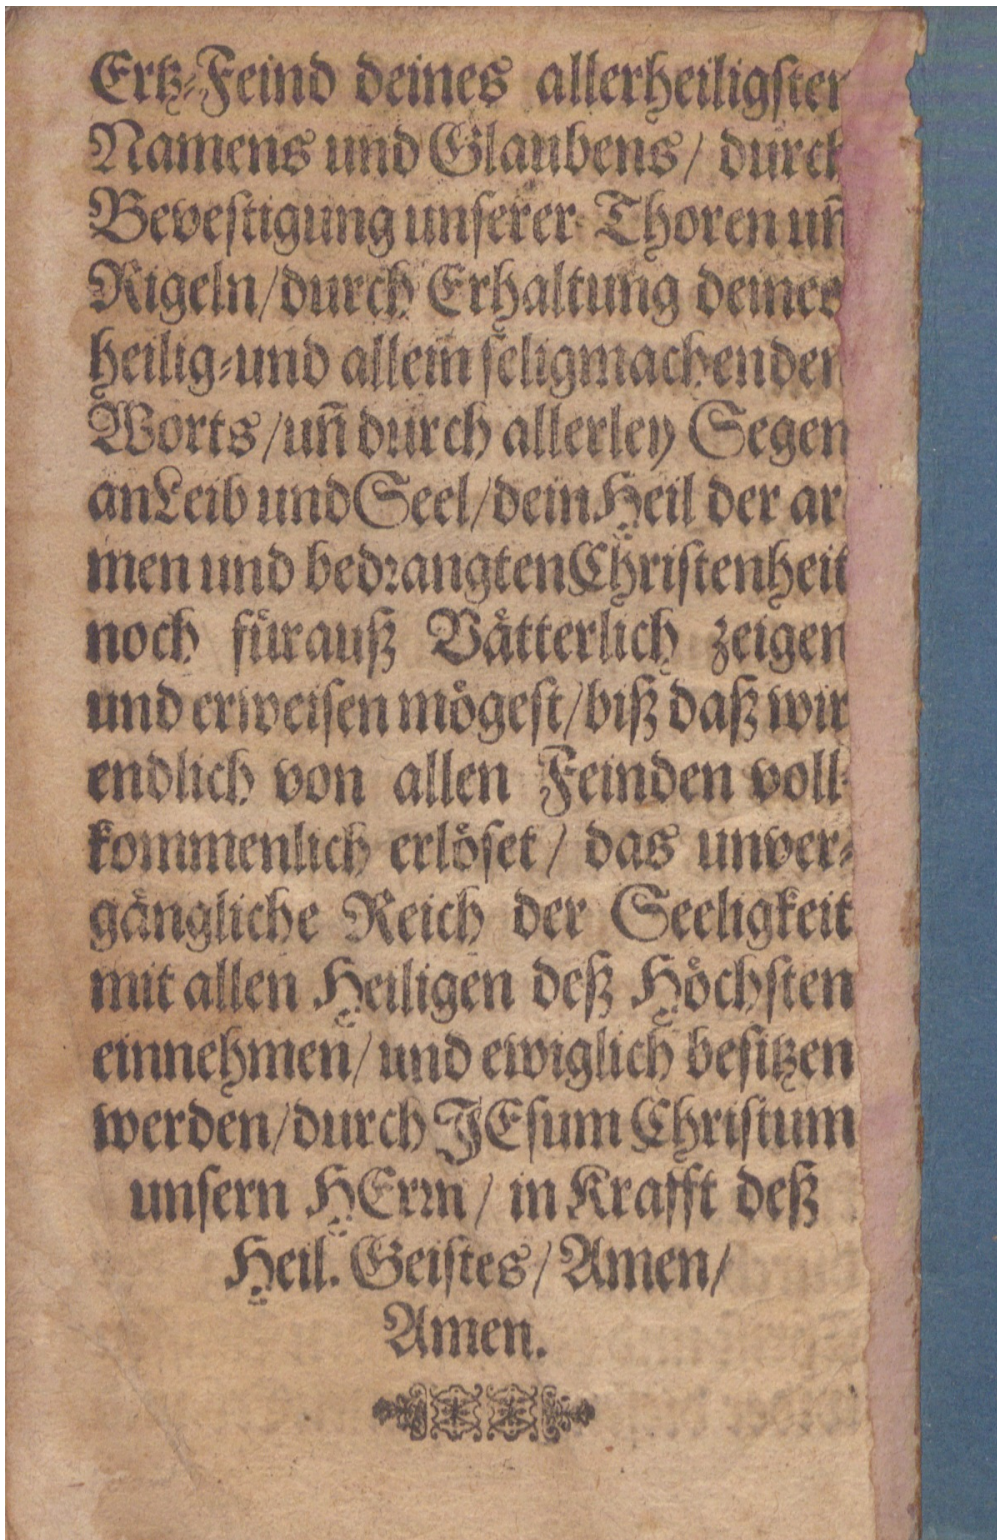 Ertz-Feind deines allerheiligsten
Namens und Glaubens/ durch
Bevestigung unserer Thoren uñ
Rigeln/durch Erhaltung deines
heilig-und allein seligmachenden
Worts/uñ durch allerley Segen
an Leib und Seel/dein Heil der ar
men und bedrangten Christenheit
noch fürauß Vätterlich zeigen
und erweisen mögest/biß daß wir
endlich von allen Feinden voll-
kommenlich erlöset/ das unver-
gängliche Reich der Seeligkeit
mit allen Heiligen deß Höchsten
einnehmen/und ewiglich besitzen
werden/durch JEsum Christum
unsern HErrn/ in Krafft deß
Heil. Geistes/Amen/
Amen.